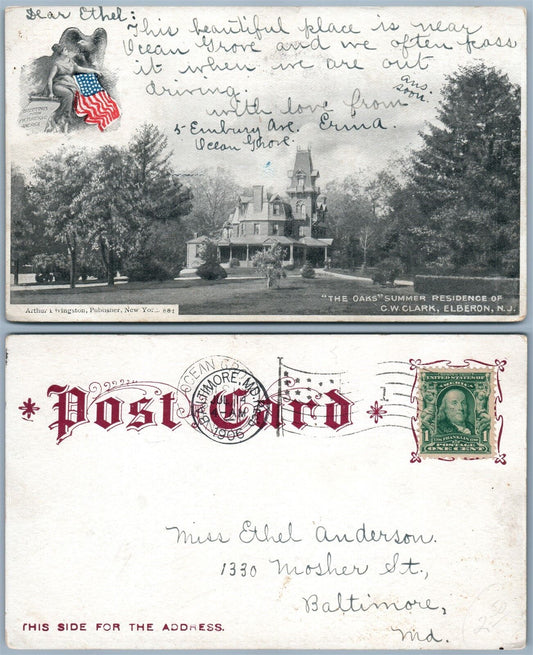 Dear Ethel:
This beautiful place is near
Ocean Grove and we often pass
it when we are out
driving.
ans.
soon.
with love from
Erma.
5 Embury Ave.
Ocean Grove.
"THE OAKS" SUMMER RESIDENCE OF
C.W. CLARK, ELBERON, N.J.
Publisher, New York. 881
Post Card
OCEAN
BALTIMORE, MD.
1906
1
UNITED STATES OF
AMERICA
1 FRANKLIN 1
ONE CENT
Miss Ethel Anderson.
1330 Mosher St.,
Baltimore,
Md.
THIS SIDE FOR THE ADDRESS.